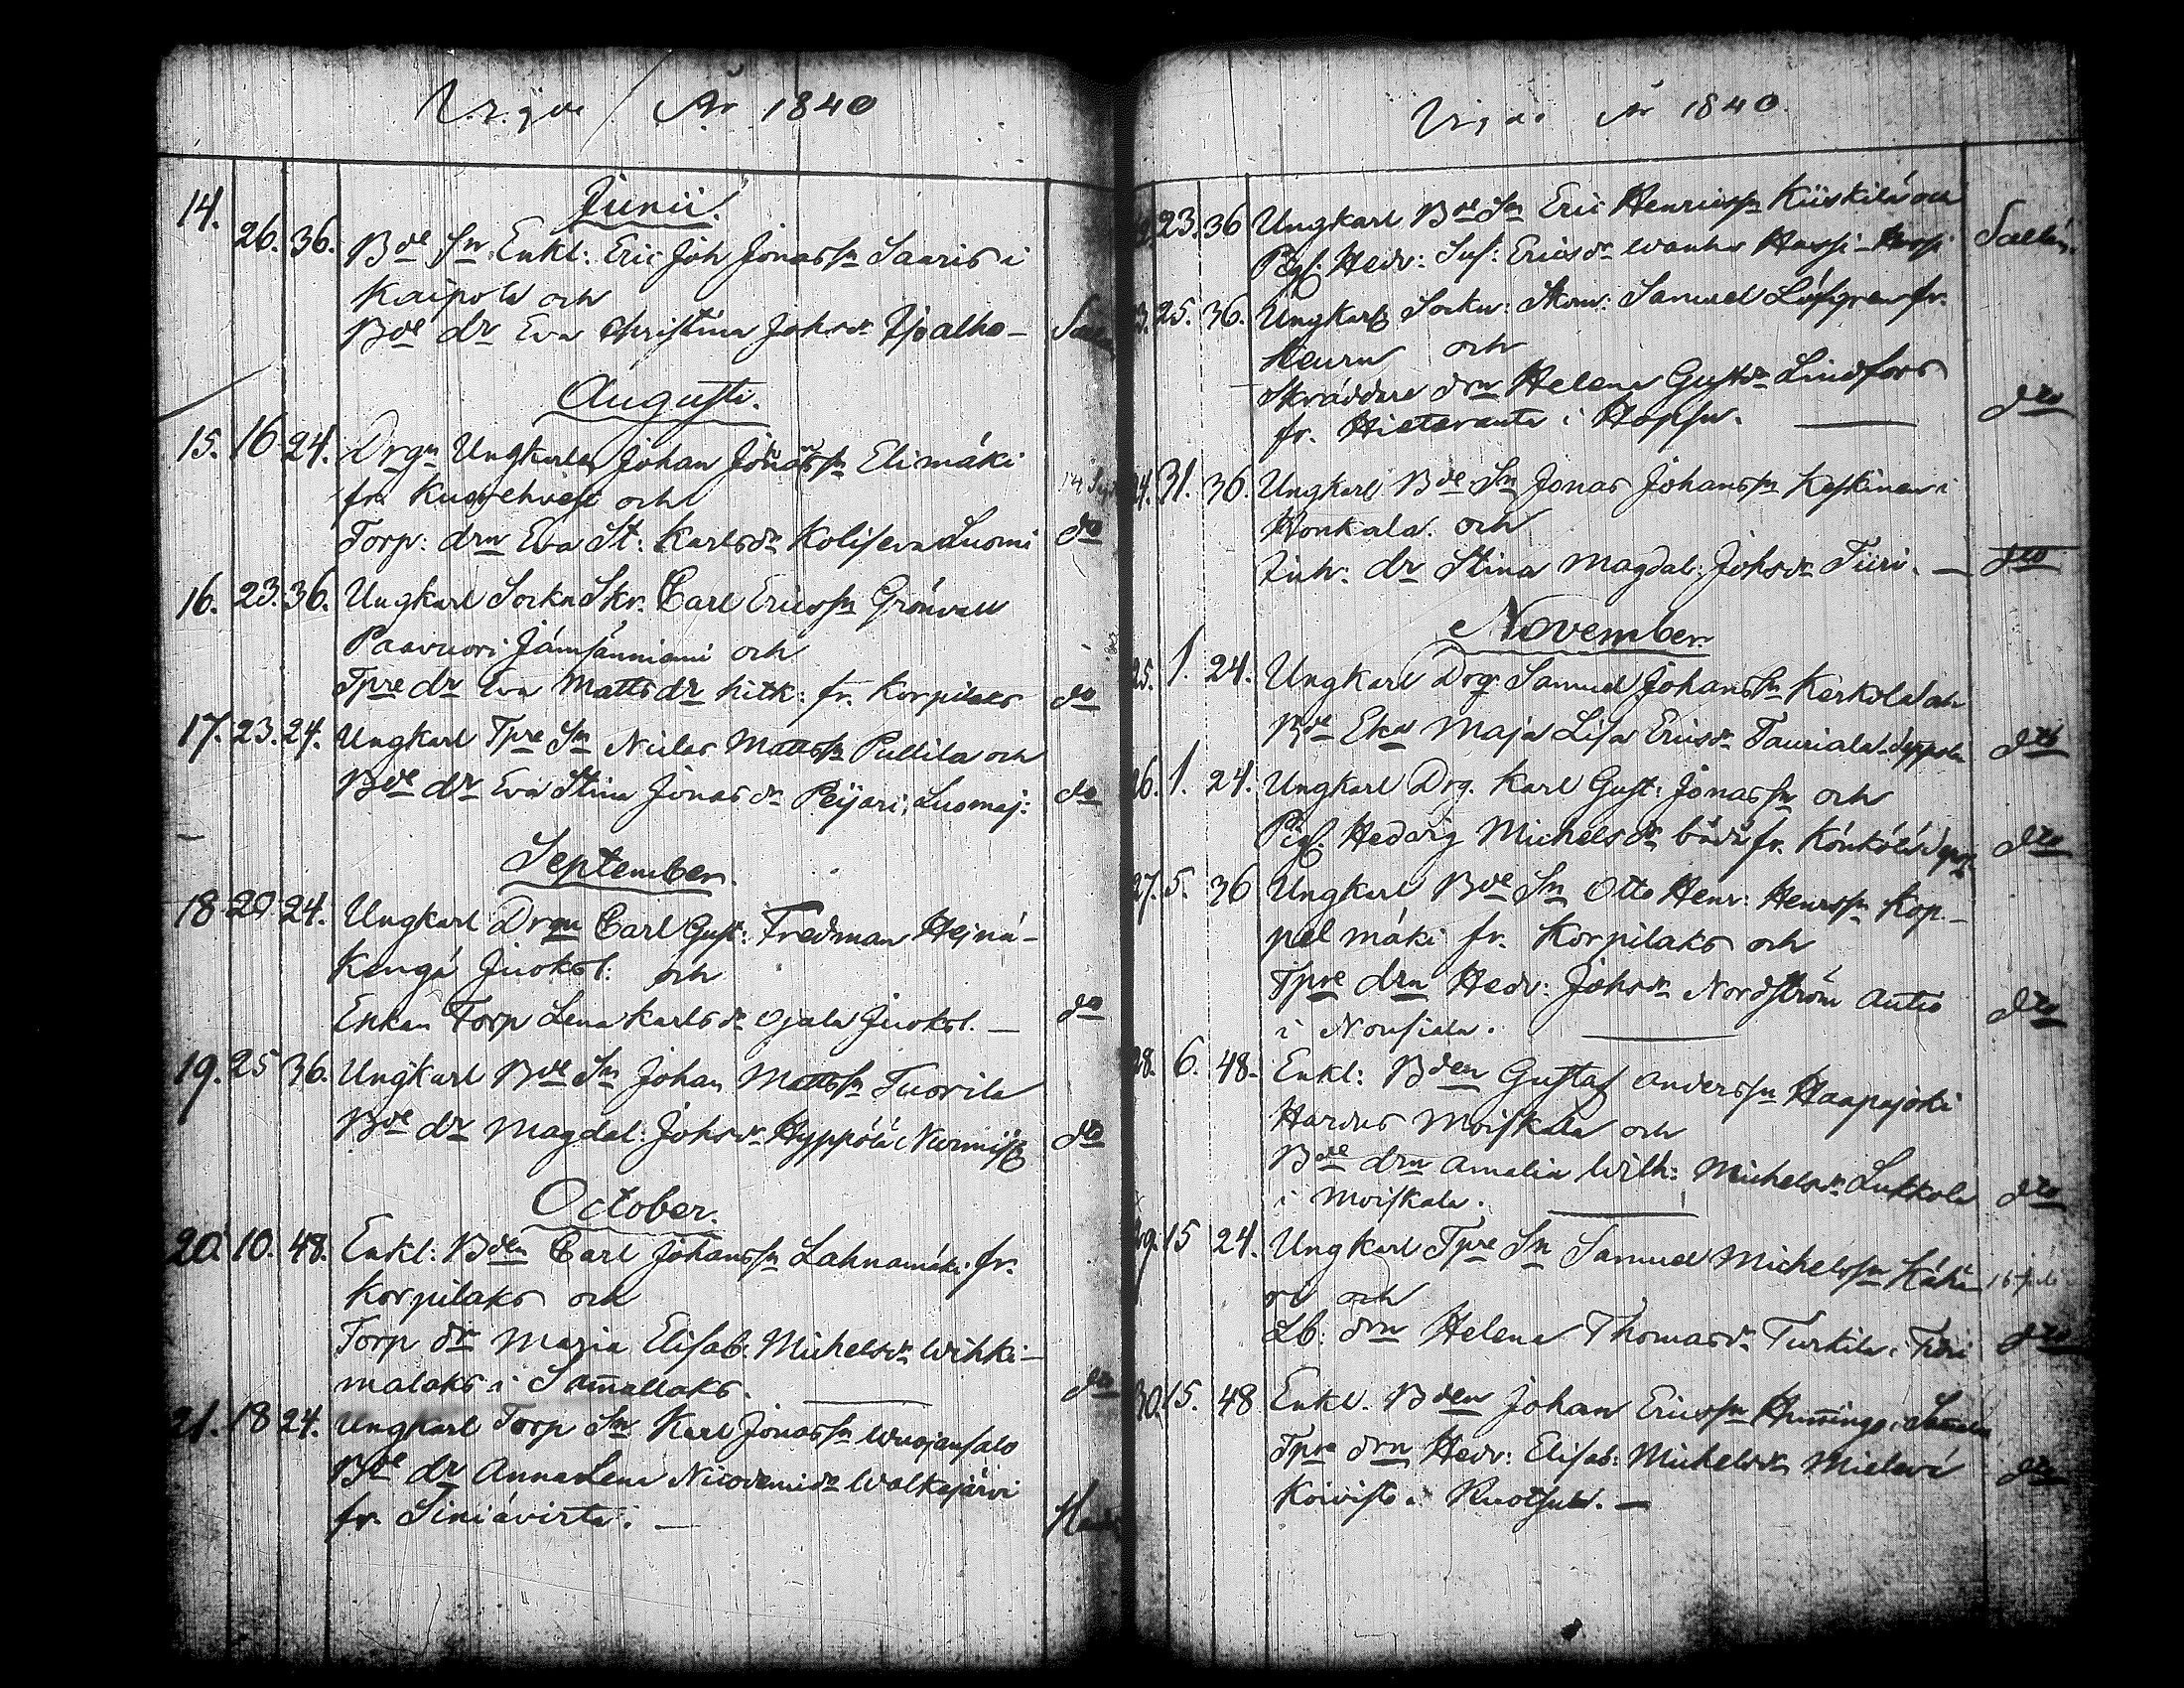 Vigde År 1840
Junii.
14. 26. 36. Bde Sn Enkl: Eric Joh Jonassn Saaris i
Kaipola och
Bde dr Eva Christina Johsdr Ijoalho-
Augusti.
15. 16 24. Drgn Ungkarlen Johan Jonassn Elimäki
fr. och
Torp: drn Eva St: Karlsdr Luomi do
16. 23. 36. Ungkarl Sockn Skr. Carl Ericssn Grönvall
Paavuori Jämsänniemi och
Tpre dr Eva Mattsdr hitk: fr. Korpilaks do
17. 23. 24. Ungkarl Tpre Sn Niclas Mattssn Pullila och
Bde dr Eva Stina Jonasdr Peijari, Luomaj: do
September.
18 20 24. Ungkarl Drgn Carl Gust: Fredman Hejnä-
Kengä Juoksl: och
Enkan Torp Lena Karlsdr Ojala Juoksl. — do
19. 25 36. Ungkarl Bde Sn Johan Mattssn Tuorila
Bde dr Magdal: Johsdr Hyppölä i do
October.
20. 10. 48. Enkl: Bden Carl Johanssn Lahnamäki fr.
Korpilaks och
Torp dr Maria Elisab. Michelsdr Wihki-
malaks i Sam̄allaks. — do
21. 18 24. Ungkarl Torp Sn Karl Jonassn
Bde dr Anna Lena Nicodemidr Walkejärvi
fr. —
År 1840.
23. 36 Ungkarl Bde Sn Eric Henricssn Kiiskilä och
Pigf: Hedv: Sus: Ericsdr Wanha Hassi
25. 36. Ungkarl Sockn: Skom: Samuel Löfgren fr.
Keuru och
Skräddare drn Helena Gustdr Lindfors
fr. Hietaranta i — dto
31. 36. Ungkarl Bde Sn Jonas Johanssn Keskinen i
Konkala. och
Inh: dr Stina Magdal: Johsdr Tiiri. — dto
November.
25. 1. 24. Ungkarl Drg. Samuel Johanssn Kerkola och
Bde Eka Maja Lisa Ericsdr Tauriala Seppola dto
26. 1. 24. Ungkarl Drg. Karl Gust: Jonassn och
Pigf. Hedvig Michelsdr båda fr. dto
27. 5. 36 Ungkarl Bde Sn Otto Henr: Henrssn Kop-
pelmäki fr. Korpilaks och
Tpre drn Hedv: Johsdr Nordström Autio
i Nousiala. — dto
28. 6. 48. Enkl: Bden Gustaf Anderssn Haapajoki
Moiskala och
Bde drn Amalia Wilh: Michelsdr Lukkola
i Moiskala. — dto
29. 15 24. Ungkarl Tpre Sn Samuel Michelssn Kähä-
rä och
Lb: drn Helena Thomasdr Turkila i dto
30. 15. 48 Enkl. Bden Johan Ericssn Hum̄inge
Tpre drn Hedv: Elisab: Michelsdr dto
Koivisto i —